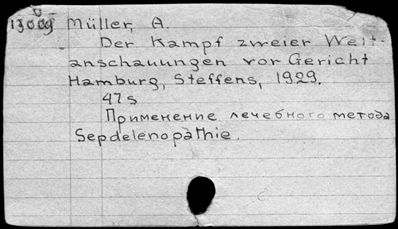 13009 Müller, A.
Der Kampf zweier Welt-
anschauungen vor Gericht
Hamburg, Steffens, 1929.
47 s
Применение лечебного метода
Sepdelenopathie.